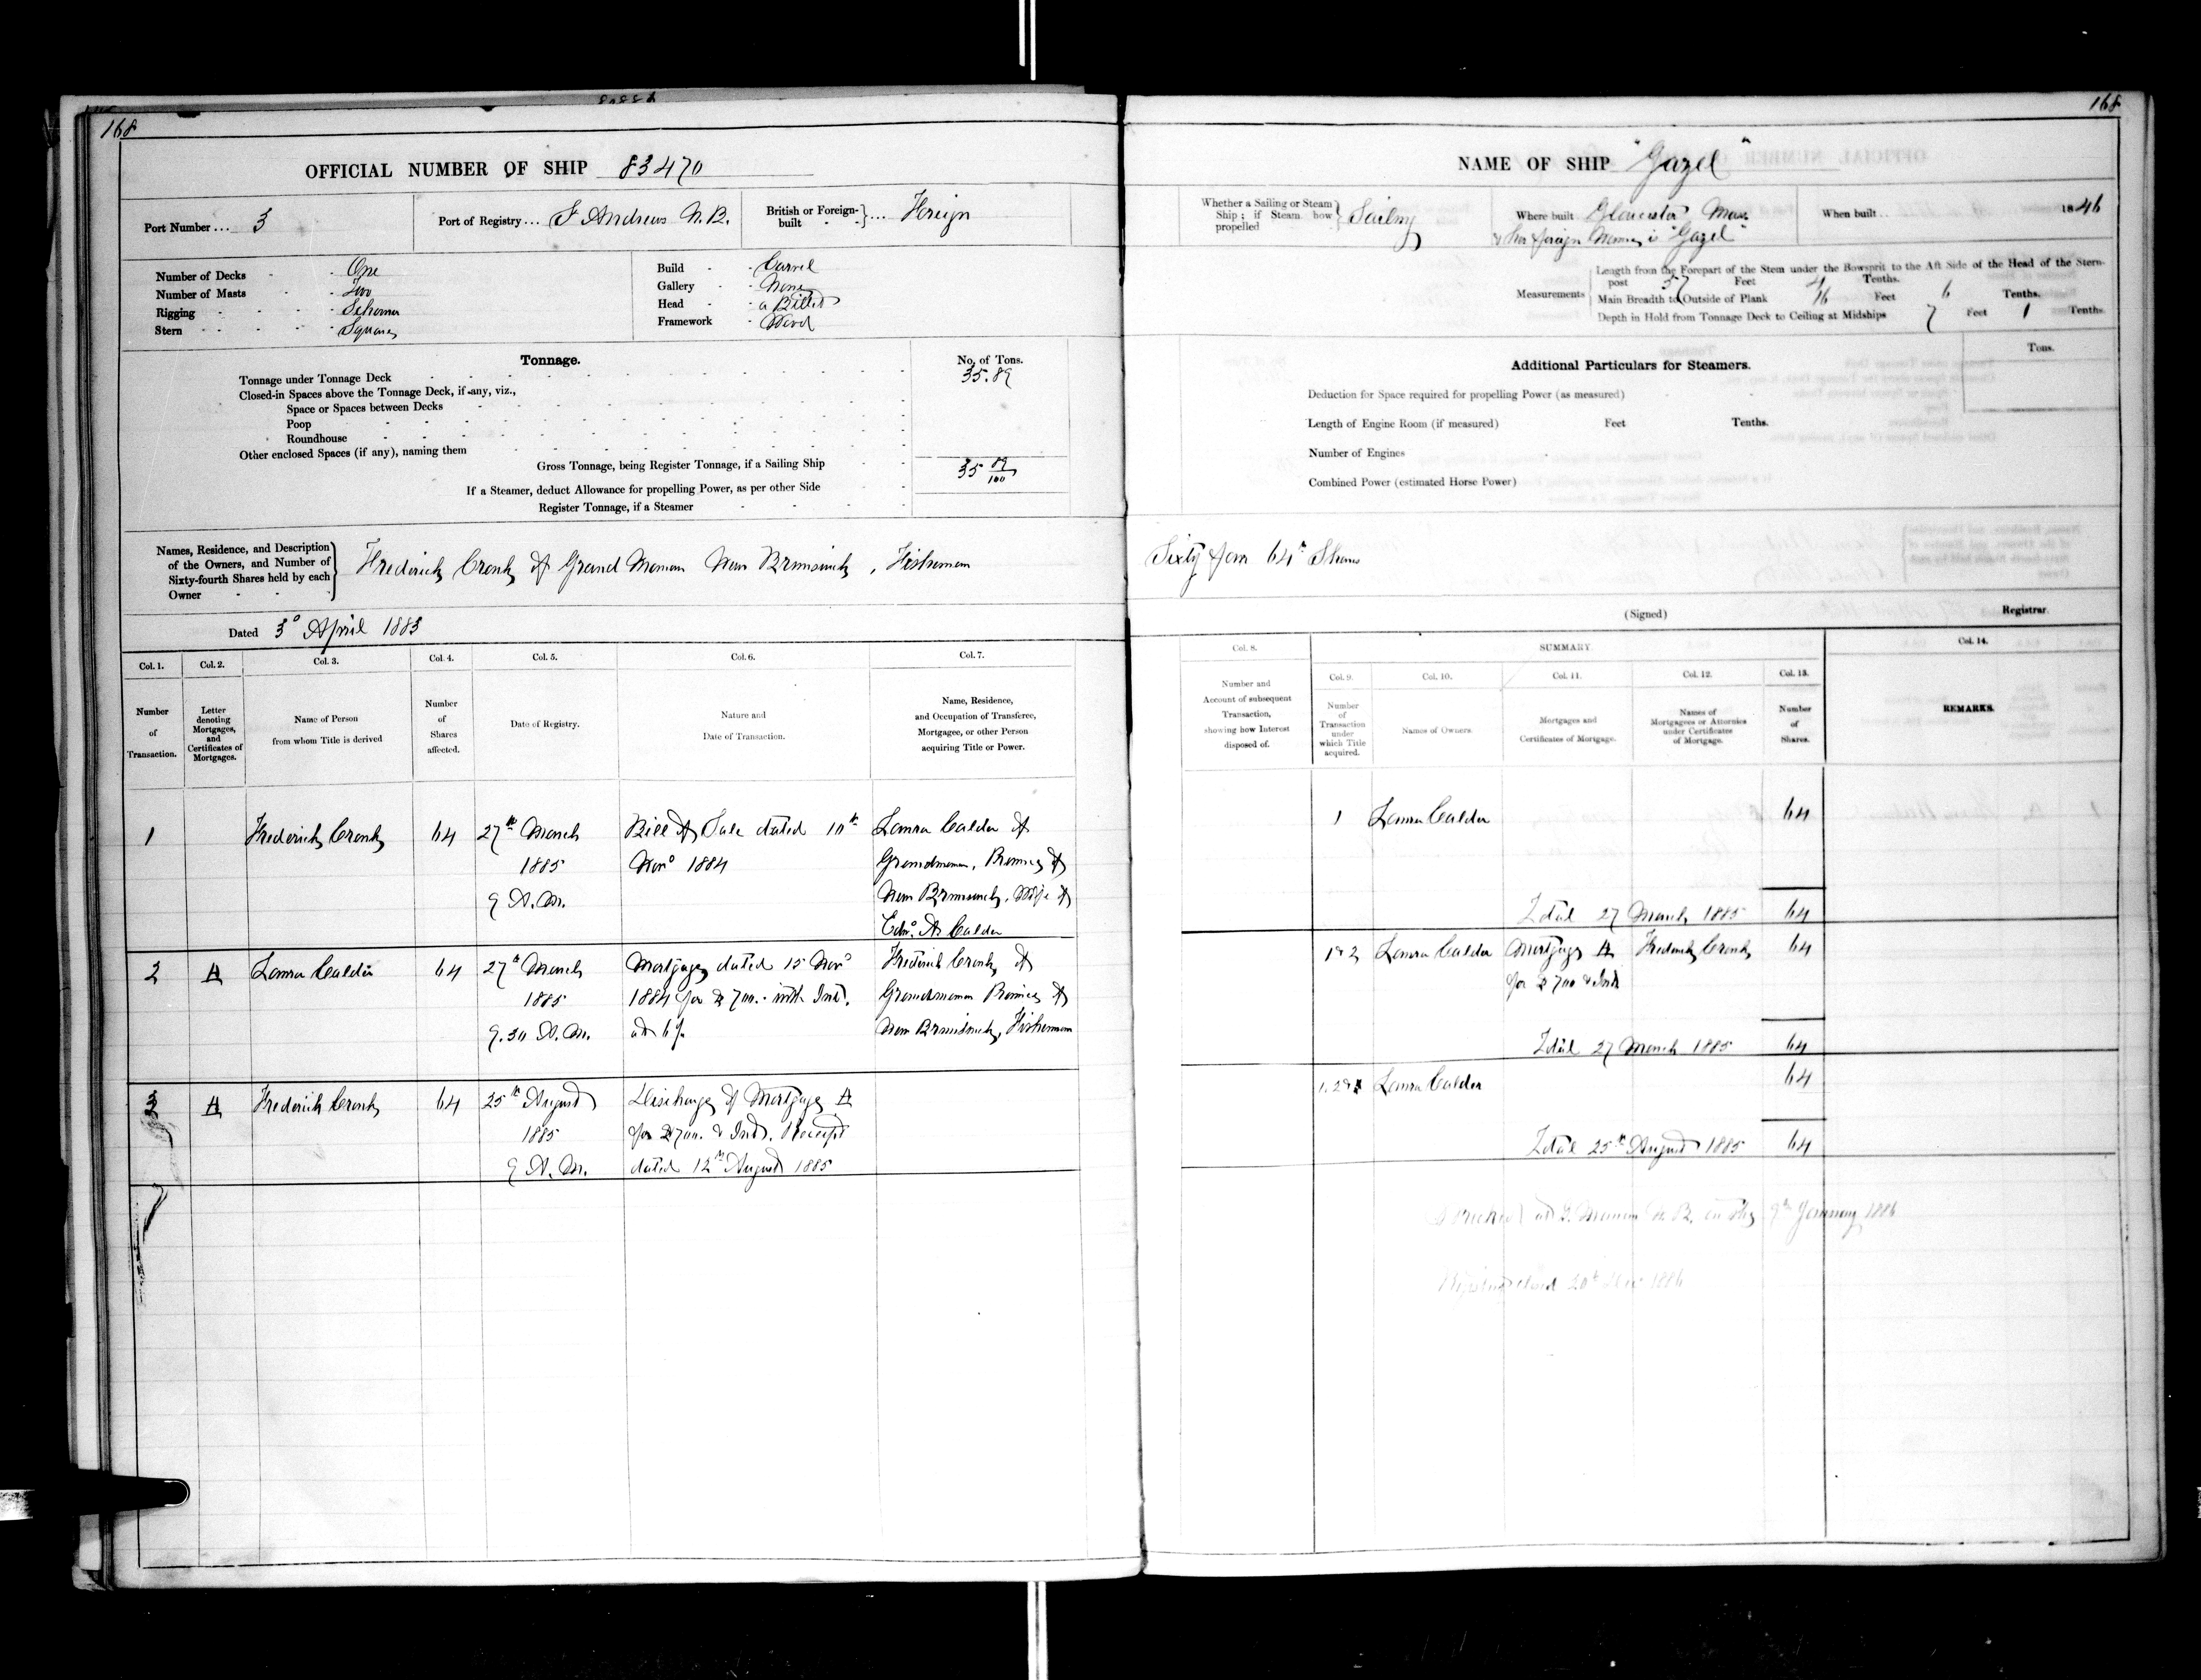 168
OFFICIAL NUMBER OF SHIP 83470
Port Number ... 3
Port of Registry ... St Andrews N.B.
British or Foreign-built } ... Foreign
Number of Decks - One
Number of Masts - Two
Rigging - Schooner
Stern - Square
Build - Carvel
Gallery - None
Head - a Billet
Framework - Wood
Tonnage.
No. of Tons.
Tonnage under Tonnage Deck 35.89
Closed-in Spaces above the Tonnage Deck, if any, viz.,
Space or Spaces between Decks
Poop
Roundhouse
Other enclosed Spaces (if any), naming them
Gross Tonnage, being Register Tonnage, if a Sailing Ship 35 89/100
If a Steamer, deduct Allowance for propelling Power, as per other Side
Register Tonnage, if a Steamer
Names, Residence, and Description
of the Owners, and Number of
Sixty-fourth Shares held by each
Owner
Frederick Cronk of Grand Manan New Brunswick, Fisherman
Dated 3d April 1883
Col. 1. Col. 2. Col. 3. Col. 4. Col. 5. Col. 6. Col. 7.
Number of Transaction.
Letter denoting Mortgages, and Certificates of Mortgages.
Name of Person from whom Title is derived
Number of Shares affected.
Date of Registry.
Nature and Date of Transaction.
Name, Residence, and Occupation of Transferee, Mortgagee, or other Person acquiring Title or Power.
1 Frederick Cronk 64 27th March Bill of Sale dated 10th Laura Calder of
1885 Novr 1884 Grandmanan, Province of
9 A.M. New Brunswick, Wife of
Edwd A Calder
2 A Laura Calder 64 27th March Mortgage dated 15 Novr Frederick Cronk of
1885 1884 for $700. with Int. Grandmanan Province of
9.30 A.M. at 6 % New Brunswick, Fisherman
3 A Frederick Cronk 64 25th August Discharge of Mortgage A
1885 for $700. & Int. Receipt
9 A.M. dated 12th August 1885
168
NAME OF SHIP "Gazel"
Whether a Sailing or Steam
Ship; if Steam how
propelled } Sailing
Where built Gloucester Mass
& her foreign name is "Gazel"
When built .. 1846
Measurements
Length from the Forepart of the Stem under the Bowsprit to the Aft Side of the Head of the Stern-
post 57 Feet 4 Tenths.
Main Breadth to Outside of Plank 16 Feet 6 Tenths.
Depth in Hold from Tonnage Deck to Ceiling at Midships 7 Feet 1 Tenths.
Additional Particulars for Steamers.
Tons.
Deduction for Space required for propelling Power (as measured)
Length of Engine Room (if measured) Feet Tenths.
Number of Engines
Combined Power (estimated Horse Power)
Sixty four 64th Shares
(Signed) Registrar.
Col. 8. SUMMARY. Col. 14.
Col. 9. Col. 10. Col. 11. Col. 12. Col. 13.
Number and Account of subsequent Transaction, showing how Interest disposed of.
Number of Transaction under which Title acquired.
Names of Owners.
Mortgages and Certificates of Mortgage.
Names of Mortgagees or Attornies under Certificates of Mortgage.
Number of Shares.
REMARKS.
1 Laura Calder 64
Total 27 March 1885 64
1 & 2 Laura Calder Mortgage A Frederick Cronk 64
for $700 & Int
Total 27 March 1885 64
1.2 & 3 Laura Calder 64
Total 25th August 1885 64
at G. Manan N.B. on the 9th January 1886
Register closed 20th 1886